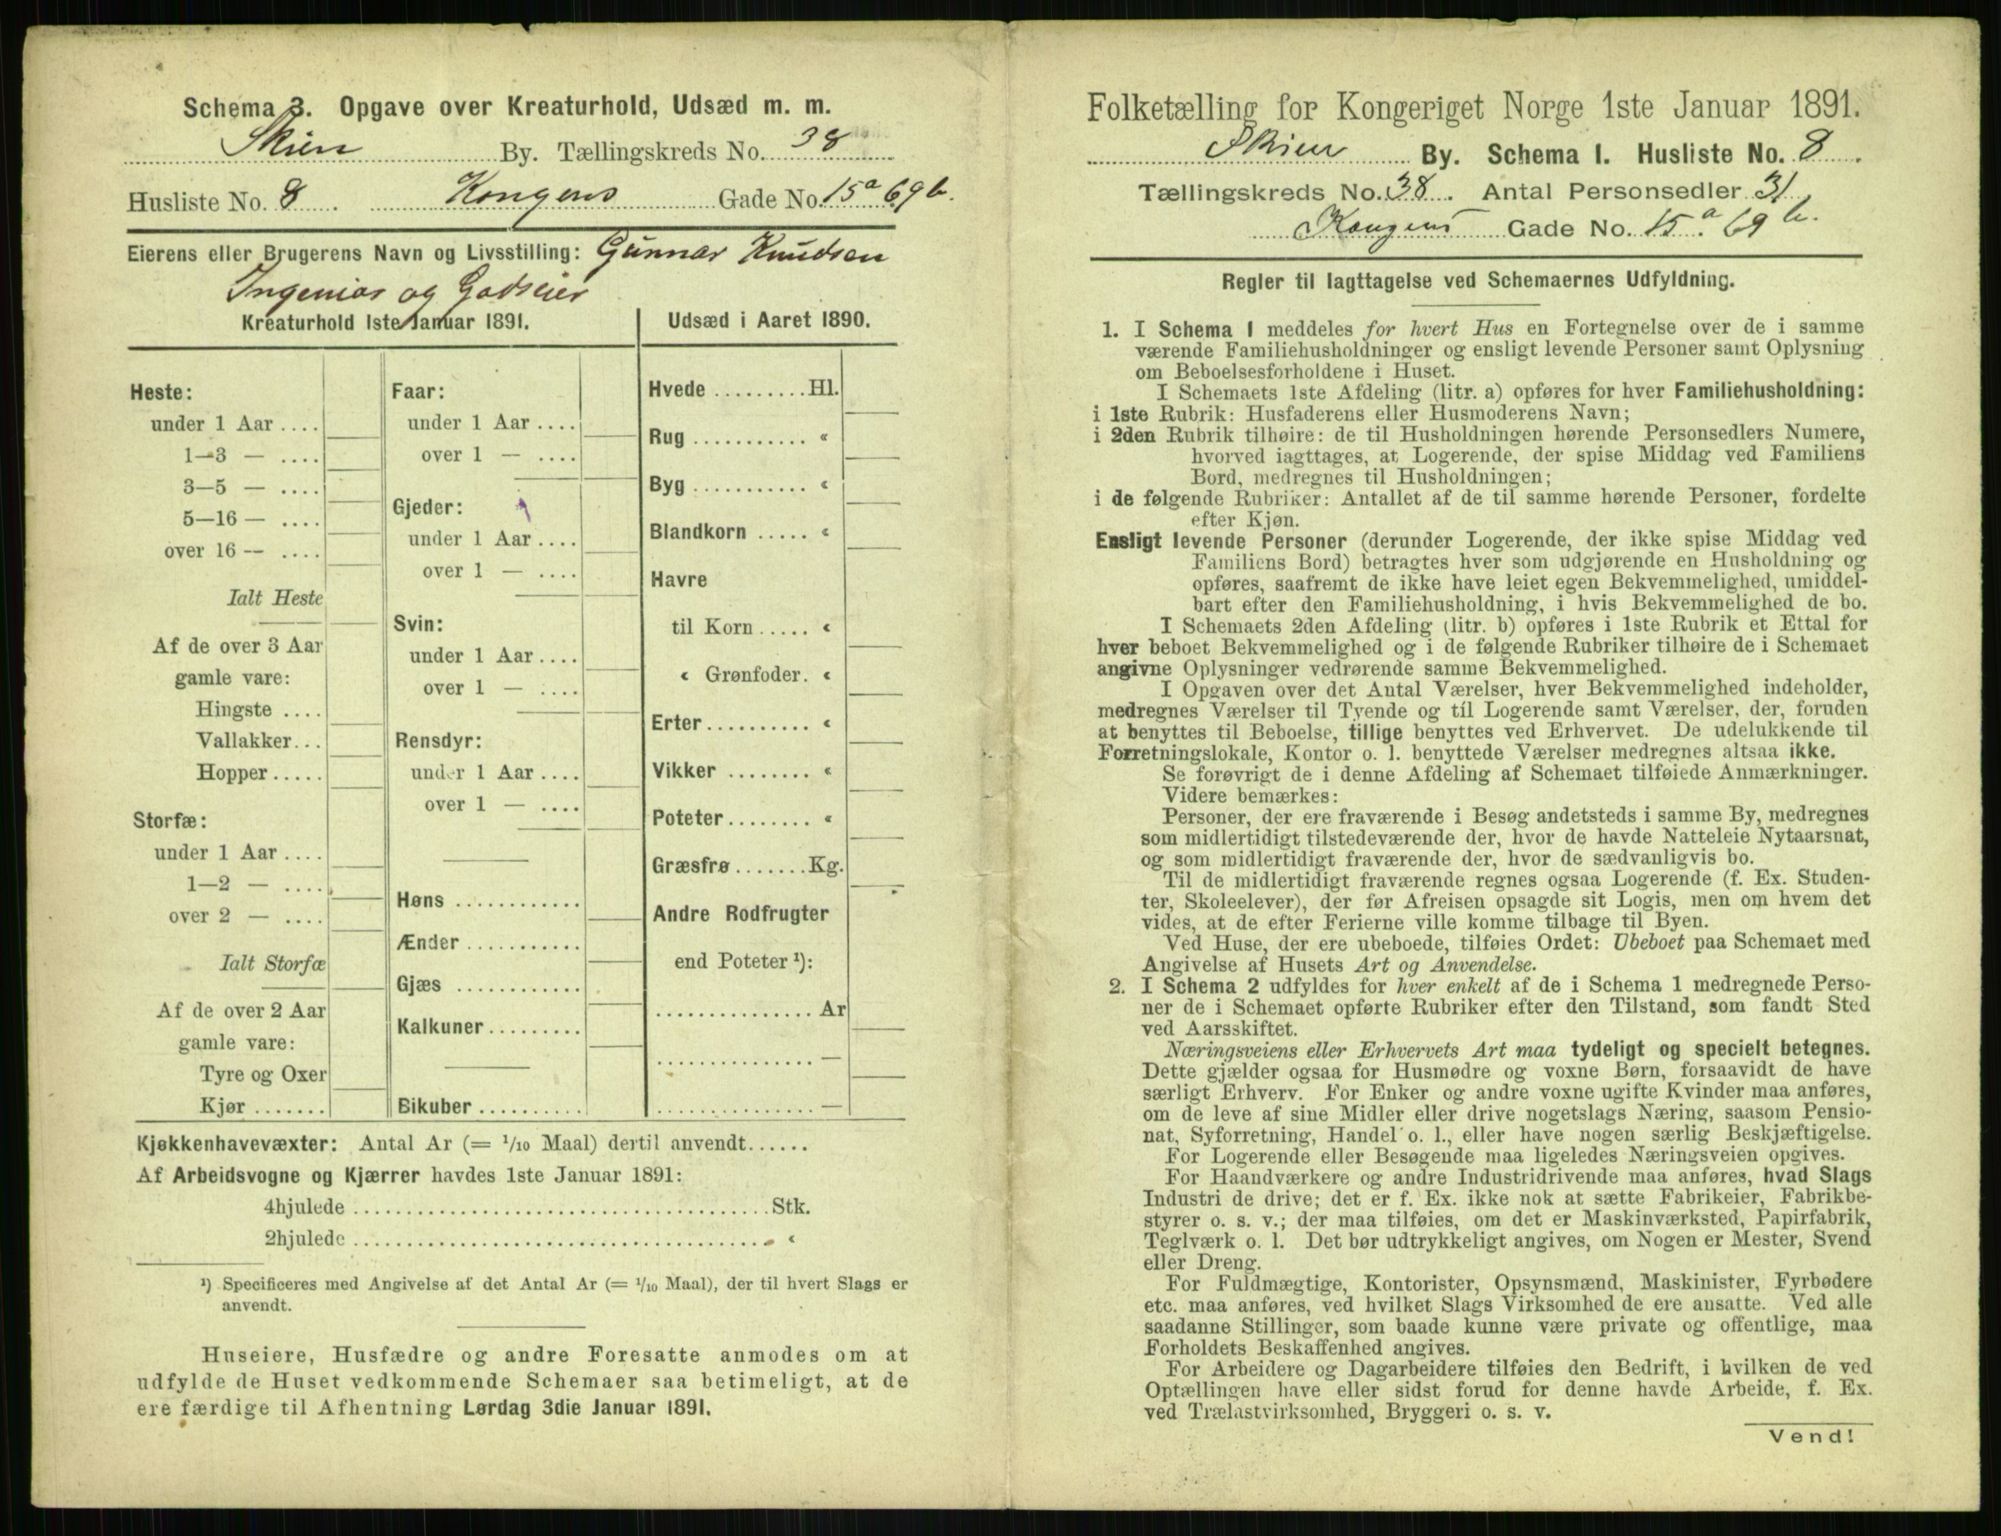 Schema 3. Opgave over Kreaturhold, Udsæd m. m.
Skien By. Tællingskreds No. 38
Husliste No. 8 Kongens Gade No. 15a 69b.
Eierens eller Brugerens Navn og Livsstilling: Gunnar Knudsen
Ingeniør og Godseier
Kreaturhold 1ste Januar 1891.
Heste:
under 1 Aar ....
1—3 — ....
3—5 — ....
5—16 — ....
over 16 — ....
Ialt Heste
Af de over 3 Aar
gamle vare:
Hingste ....
Vallakker...
Hopper.....
Storfæ:
under 1 Aar ....
1—2 — ....
over 2 — ....
Ialt Storfæ
Af de over 2 Aar
gamle vare:
Tyre og Oxer
Kjør.......
Faar:
under 1 Aar ....
over 1 — ....
Gjeder:
under 1 Aar ....
over 1 — ....
Svin:
under 1 Aar ....
over 1 — ....
Rensdyr:
under 1 Aar ....
over 1 — ....
Høns ............
Ænder...........
Gjæs ............
Kalkuner.........
Bikuber..........
Udsæd i Aaret 1890.
Hvede .........Hl.
Rug ........... “
Byg ........... “
Blandkorn ..... “
Havre
til Korn..... “
“ Grønfoder. “
Erter.......... “
Vikker ........ “
Poteter........ “
Græsfrø.......Kg.
Andre Rodfrugter
end Poteter ¹):
............... Ar
............... —
............... —
Kjøkkenhavevæxter: Antal Ar (= 1/10 Maal) dertil anvendt......
Af Arbeidsvogne og Kjærrer havdes 1ste Januar 1891:
4hjulede ...................................Stk.
2hjulede ................................... “
¹) Specificeres med Angivelse af det Antal Ar (= 1/10 Maal), der til hvert Slags er
anvendt.
Huseiere, Husfædre og andre Foresatte anmodes om at
udfylde de Huset vedkommende Schemaer saa betimeligt, at de
ere færdige til Afhentning Lørdag 3die Januar 1891.
Folketælling for Kongeriget Norge 1ste Januar 1891.
Skien By. Schema 1. Husliste No. 8.
Tællingskreds No. 38. Antal Personsedler 31
Kongens Gade No. 15a. 69b.
Regler til Iagttagelse ved Schemaernes Udfyldning.
1. I Schema 1 meddeles for hvert Hus en Fortegnelse over de i samme
værende Familiehusholdninger og ensligt levende Personer samt Oplysning
om Beboelsesforholdene i Huset.
I Schemaets 1ste Afdeling (litr. a) opføres for hver Familiehusholdning:
i 1ste Rubrik: Husfaderens eller Husmoderens Navn;
i 2den Rubrik tilhøire: de til Husholdningen hørende Personsedlers Numere,
hvorved iagttages, at Logerende, der spise Middag ved Familiens
Bord, medregnes til Husholdningen;
i de følgende Rubriker: Antallet af de til samme hørende Personer, fordelte
efter Kjøn.
Ensligt levende Personer (derunder Logerende, der ikke spise Middag ved
Familiens Bord) betragtes hver som udgjørende en Husholdning og
opføres, saafremt de ikke have leiet egen Bekvemmelighed, umiddel-
bart efter den Familiehusholdning, i hvis Bekvemmelighed de bo.
I Schemaets 2den Afdeling (litr. b) opføres i 1ste Rubrik et Ettal for
hver beboet Bekvemmelighed og i de følgende Rubriker tilhøire de i Schemaet
angivne Oplysninger vedrørende samme Bekvemmelighed.
I Opgaven over det Antal Værelser, hver Bekvemmelighed indeholder,
medregnes Værelser til Tyende og til Logerende samt Værelser, der, foruden
at benyttes til Beboelse, tillige benyttes ved Erhvervet. De udelukkende til
Forretningslokale, Kontor o. l. benyttede Værelser medregnes altsaa ikke.
Se forøvrigt de i denne Afdeling af Schemaet tilføiede Anmærkninger.
Videre bemærkes:
Personer, der ere fraværende i Besøg andetsteds i samme By, medregnes
som midlertidigt tilstedeværende der, hvor de havde Natteleie Nytaarsnat,
og som midlertidigt fraværende der, hvor de sædvanligvis bo.
Til de midlertidigt fraværende regnes ogsaa Logerende (f. Ex. Studen-
ter, Skoleelever), der før Afreisen opsagde sit Logis, men om hvem det
vides, at de efter Ferierne ville komme tilbage til Byen.
Ved Huse, der ere ubeboede, tilføies Ordet: Ubeboet paa Schemaet med
Angivelse af Husets Art og Anvendelse.
2. I Schema 2 udfyldes for hver enkelt af de i Schema 1 medregnede Perso-
ner de i Schemaet opførte Rubriker efter den Tilstand, som fandt Sted
ved Aarsskiftet.
Næringsveiens eller Erhvervets Art maa tydeligt og specielt betegnes.
Dette gjælder ogsaa for Husmødre og voxne Børn, forsaavidt de have
særligt Erhverv. For Enker og andre voxne ugifte Kvinder maa anføres,
om de leve af sine Midler eller drive nogetslags Næring, saasom Pensio-
nat, Syforretning, Handel o. l., eller have nogen særlig Beskjæftigelse.
For Logerende eller Besøgende maa ligeledes Næringsveien opgives.
For Haandværkere og andre Industridrivende maa anføres, hvad Slags
Industri de drive; det er f. Ex. ikke nok at sætte Fabrikeier, Fabrikbe-
styrer o. s. v.; der maa tilføies, om det er Maskinværksted, Papirfabrik,
Teglværk o. l. Det bør udtrykkeligt angives, om Nogen er Mester, Svend
eller Dreng.
For Fuldmægtige, Kontorister, Opsynsmænd, Maskinister, Fyrbødere
etc. maa anføres, ved hvilket Slags Virksomhed de ere ansatte. Ved alle
saadanne Stillinger, som baade kunne være private og offentlige, maa
Forholdets Beskaffenhed angives.
For Arbeidere og Dagarbeidere tilføies den Bedrift, i hvilken de ved
Optællingen have eller sidst forud for denne havde Arbeide, f. Ex.
ved Trælastvirksomhed, Bryggeri o. s. v.
Vend!